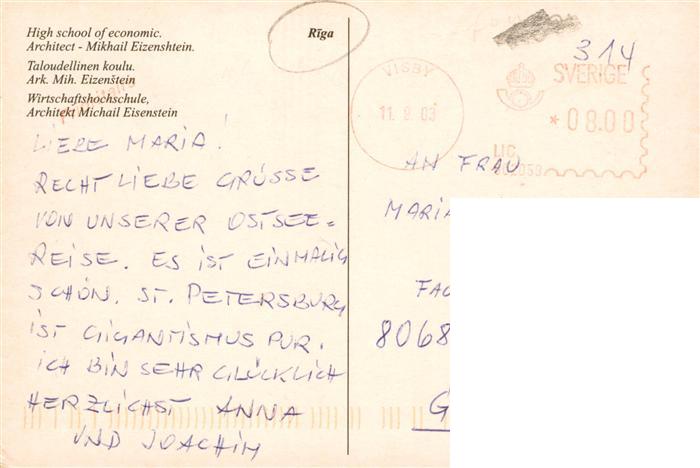 High school of economic.
Architect - Mikhail Eizenshtein.
Taloudellinen koulu.
Ark. Mih. Eizenštein
Wirtschaftshochschule,
Architekt Michail Eisenstein
Rīga
LIEBE MARIA!
RECHT LIEBE GRÜSSE
VON UNSERER OSTSEE=
REISE. ES IST EINMALIG
SCHÖN. ST. PETERSBURG
IST GIGANTISMUS PUR.
ICH BIN SEHR GLÜCKLICH
HERZLICHST ANNA
UND JOACHIM
314
VISBY
11.8.03
SVERIGE
*08.00
LIC
AN FRAU
MARIA
FAC
8068
G